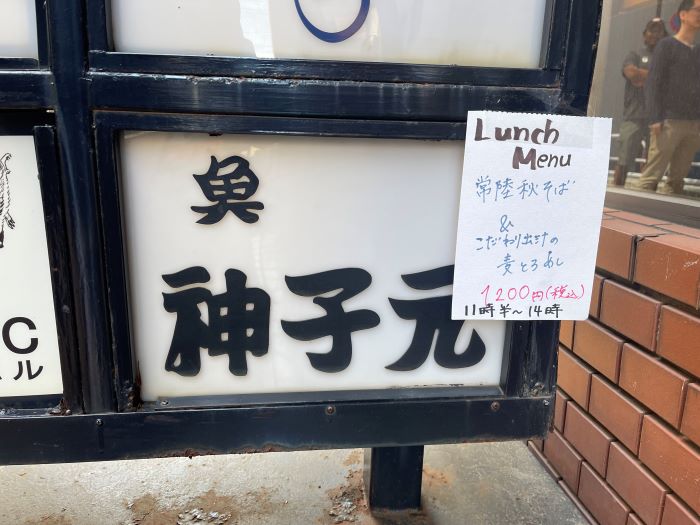 魚
神子元
Lunch
Menu
常陸秋そば
&
こだわり出汁の
麦とろめし
1200円(税込)
11時半~14時
C
ル